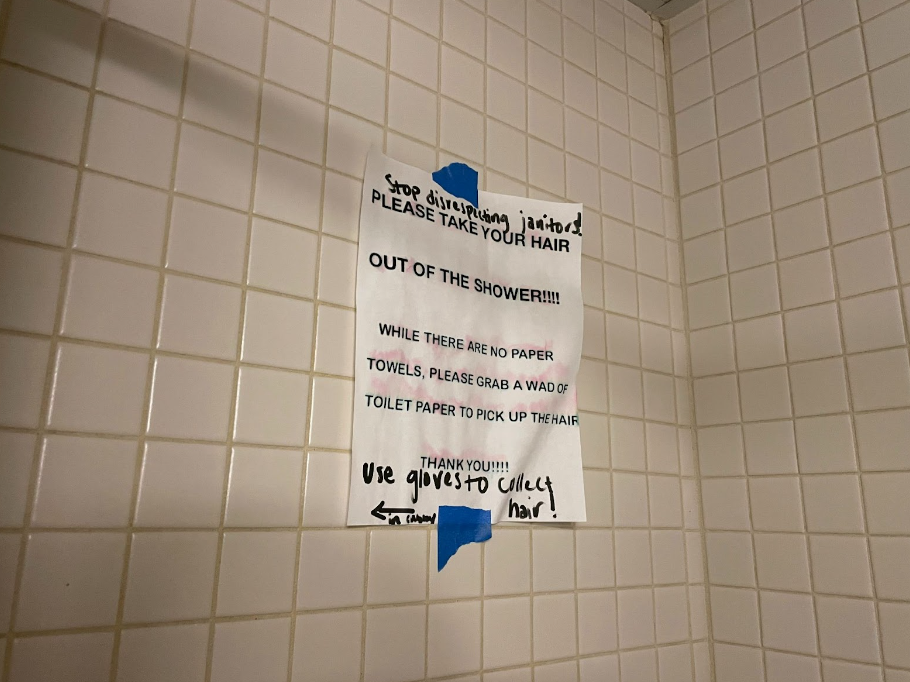 Stop disrespecting janitors!
PLEASE TAKE YOUR HAIR
OUT OF THE SHOWER!!!!
WHILE THERE ARE NO PAPER
TOWELS, PLEASE GRAB A WAD OF
TOILET PAPER TO PICK UP THE HAIR
THANK YOU!!!!
Use gloves to collect
hair!
← in